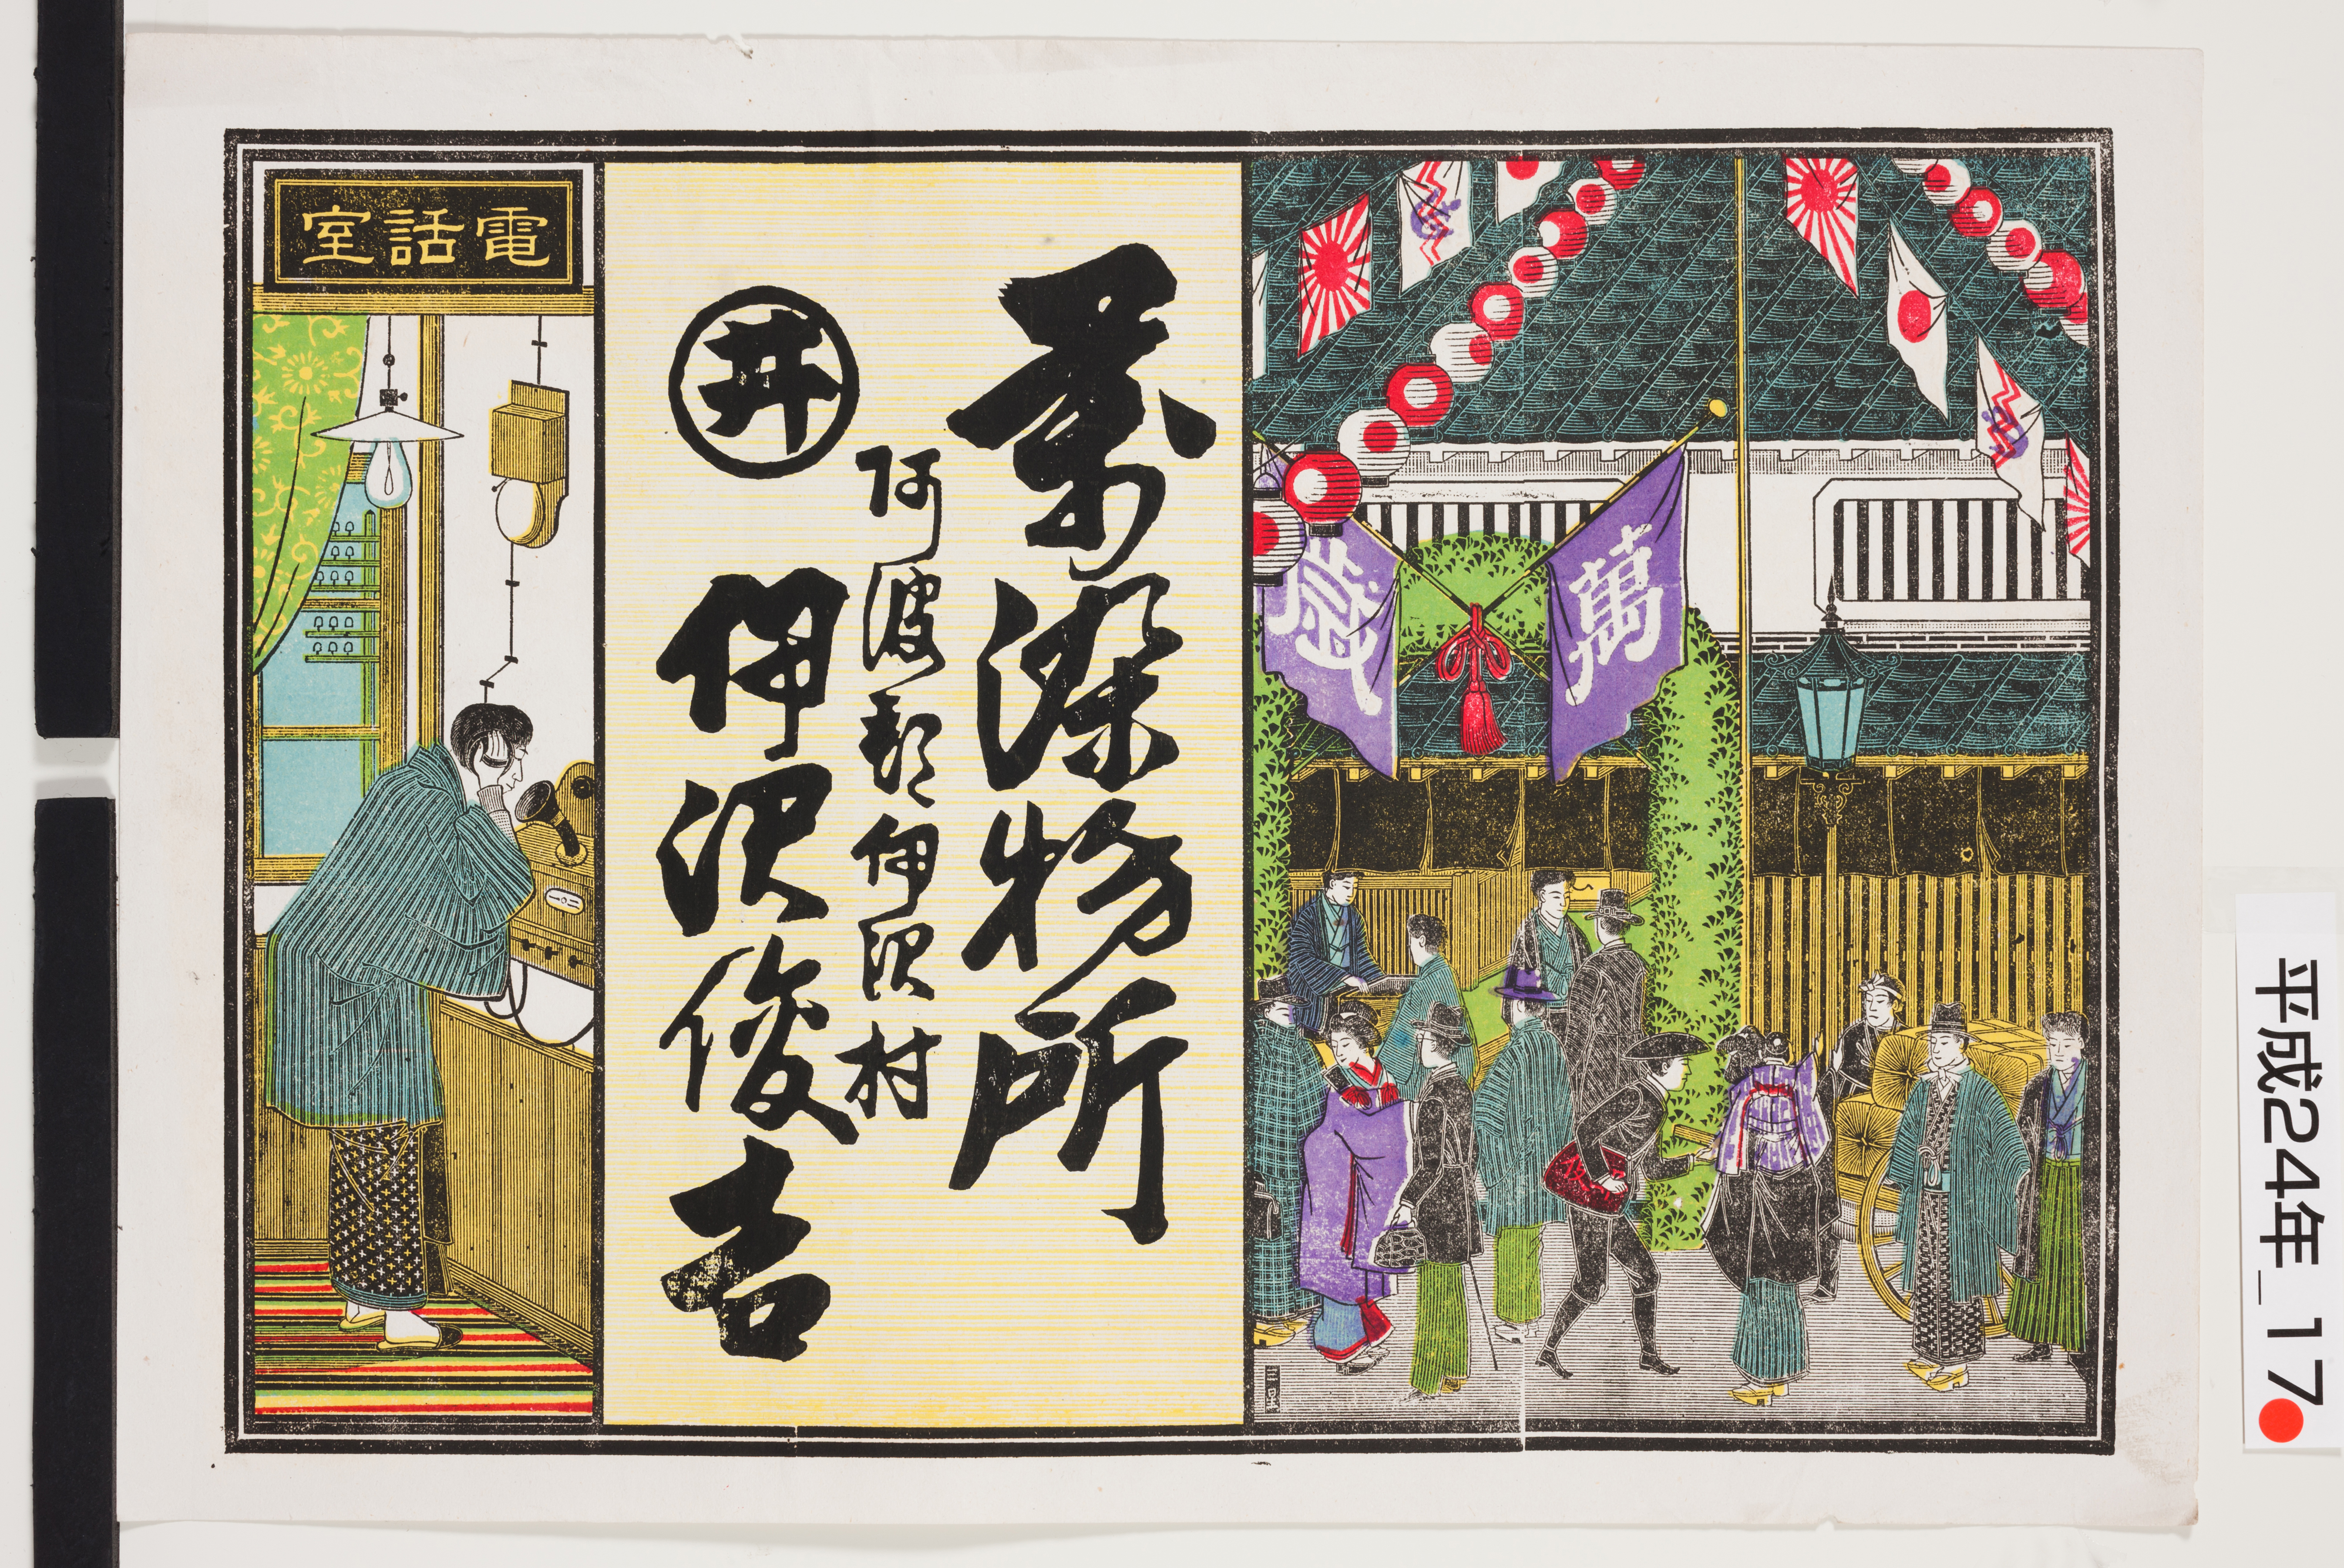 萬歳
万染物所
阿波郡伊沢村
井
伊沢俊吉
電話室
平成24年_17